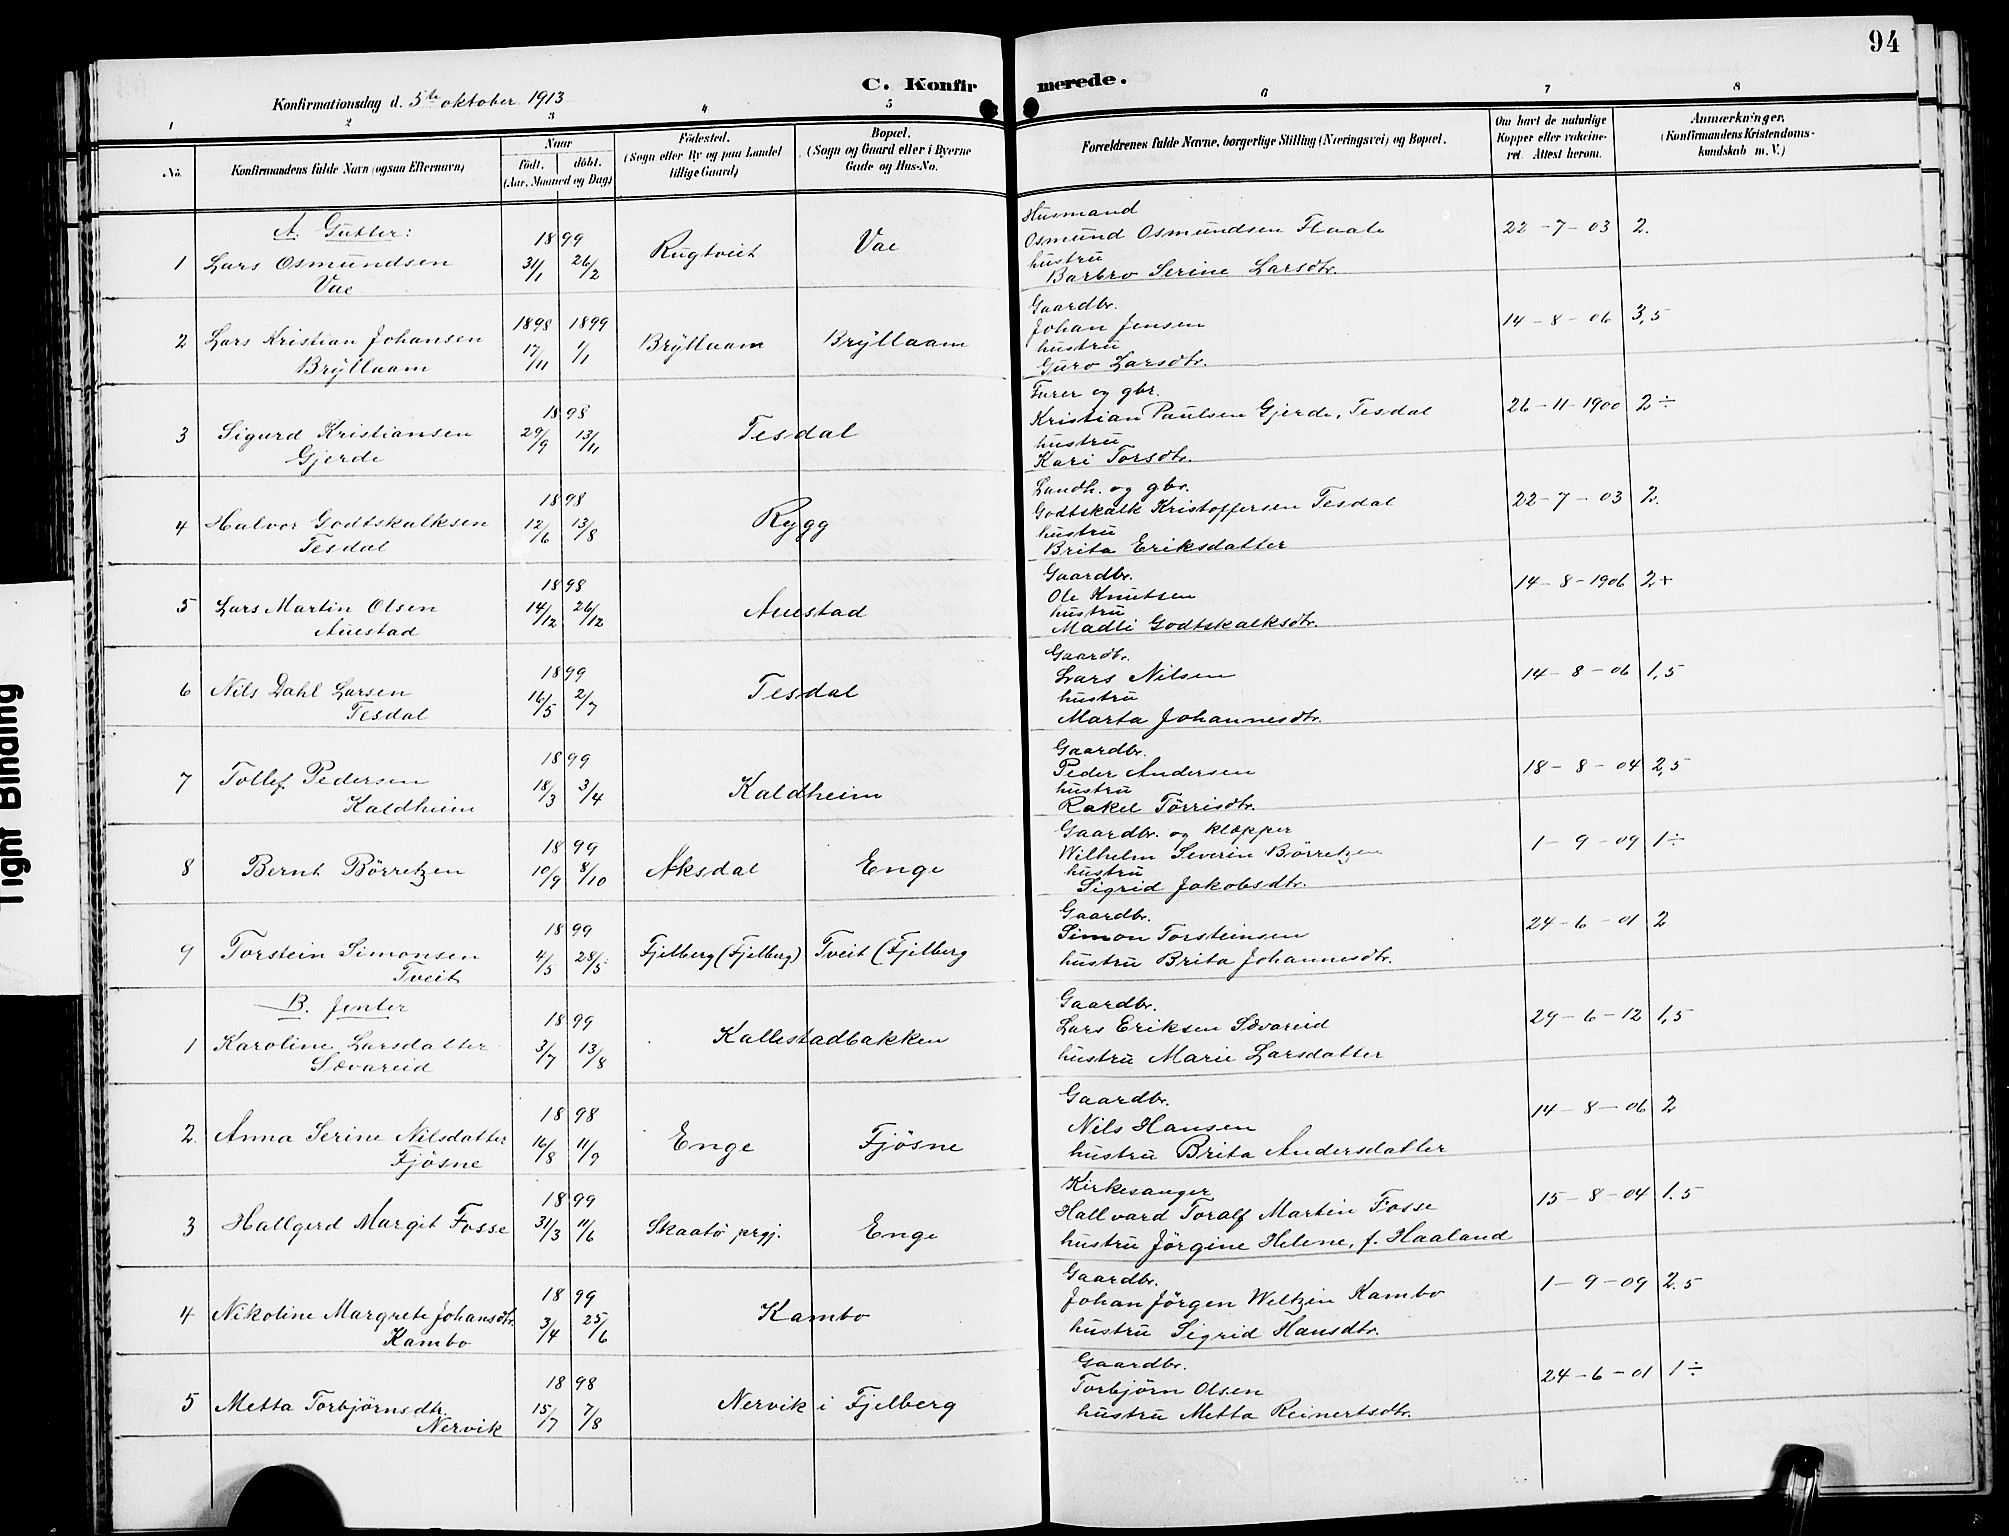 94
C. Konfirmerede.
Konfirmationsdag d. 5te oktober 1913
1 2 3 4 5 6 7 8
No.
Konfirmandens fulde Navn (ogsaa Efternavn)
Naar
født. døbt.
(Aar, Maaned og Dag)
Fødested.
(Sogn eller By og paa Landet
tillige Gaard)
Bopæl.
(Sogn og Gaard eller i Byerne
Gade og Hus-No.
Forældrenes fulde Navne, borgerlige Stilling (Næringsvei) og Bopæl.
Om havt de naturlige
Kopper eller vakcine-
ret. Attest herom.
Anmærkninger.
(Konfirmandens Kristendoms-
kundskab m. V.)
A. Gutter:
1 Lars Osmundsen
Vae
1899
31/1 26/2
Rugtveit
Vae
Husmand
Osmund Osmundsen Flaate
hustru
Barbro Serine Larsdtr.
22-7-03 2.
2 Lars Kristian Johansen
Bryllaam
1898 1899
17/11 1/1
Bryllaam
Bryllaam
Gaardbr.
Johan Jensen
hustru
Guro Larsdtr.
14-8-06 3,5
3 Sigurd Kristiansen
Gjerde
1898
29/9 13/11
Tesdal
Furer og gbr.
Kristian Paulsen Gjerde, Tesdal
hustru
Kari Torsdtr.
26-11-1900 2÷
4 Halvor Godtskalksen
Tesdal
1898
12/6 13/8
Rygg
Landh. og gbr.
Godtskalk Kristoffersen Tesdal
hustru
Brita Eriksdatter
22-7-03 2.
5 Lars Martin Olsen
Auestad
1898
14/12 26/12
Auestad
Gaardbr.
Ole Knutsen
hustru
Madli Godtskalksdtr.
14-8-1906 2+
6 Nils Dahl Larsen
Tesdal
1899
16/5 2/7
Tesdal
Gaardbr.
Lars Nilsen
hustru
Marta Johannesdtr.
14-8-06 1,5
7 Tollef Pedersen
Kaldheim
1899
18/3 3/4
Kaldheim
Gaardbr.
Peder Andersen
hustru
Rakel Tørrisdtr.
18-8-04 2,5
8 Bernt Børretzen
1899
10/9 8/10
Aksdal
Enge
Gaardbr. og klopper
Wilhelm Severin Børretzen
hustru
Sigrid Jakobsdtr.
1-9-09 1÷
9 Torstein Simonsen
Tveit
1899
4/5 28/5
Fjelberg (Fjelberg)
Tveit (Fjelberg
Gaardbr.
Simon Torsteinsen
hustru Brita Johannesdtr.
24-6-01 2
B. Jenter
1 Karoline Larsdatter
Sævareid
1899
3/7 13/8
Kallestadbakken
Gaardbr.
Lars Eriksen Sævareid
hustru Marie Larsdatter
29-6-12 1,5
2. Anna Serine Nilsdatter
Fjøsne
1898
16/8 11/9
Enge
Fjøsne
Gaardbr.
Nils Hansen
hustru Brita Andersdatter
14-8-06 2
3 Hallgerd Margit Fosse
1899
31/3 11/6
Skaatø prgj.
Enge
Kirkesanger
Hallvard Toralf Martin Fosse
hustru Jørgine Helene, f. Haaland
15-8-04 1.5
4 Nikoline Margrete Johansdtr.
Kambo
1899
3/4 25/6
Kambo
Gaardbr.
Johan Jørgen Weltzin Kambo
hustru Sigrid Hansdtr.
1-9-09 2.5
5 Metta Torbjørnsdtr.
Nervik
1898
15/7 7/8
Nervik i Fjelberg
Gaardbr.
Torbjørn Olsen
hustru Metta Reinertsdtr.
24-6-01 1÷
Tight Binding